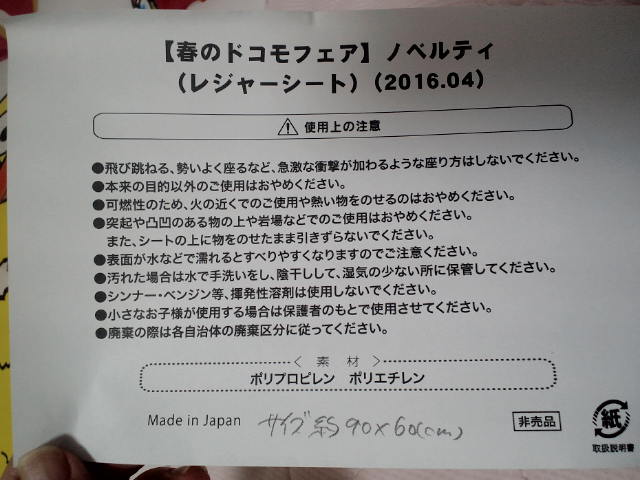 【春のドコモフェア】ノベルティ
（レジャーシート）（2016.04）
⚠ 使用上の注意
●飛び跳ねる、勢いよく座るなど、急激な衝撃が加わるような座り方はしないでください。
●本来の目的以外のご使用はおやめください。
●可燃性のため、火の近くでのご使用や熱い物をのせるのはおやめください。
●突起や凸凹のある物の上や岩場などでのご使用はおやめください。
また、シートの上に物をのせたまま引きずらないでください。
●表面が水などで濡れるとすべりやすくなりますのでご注意ください。
●汚れた場合は水で手洗いをし、陰干しして、湿気の少ない所に保管してください。
●シンナー・ベンジン等、揮発性溶剤は使用しないでください。
●小さなお子様が使用する場合は保護者のもとで使用させてください。
●廃棄の際は各自治体の廃棄区分に従ってください。
＜ 素 材 ＞
ポリプロピレン ポリエチレン
Made in Japan サイズ 約90×60(cm)
非売品
紙
取扱説明書